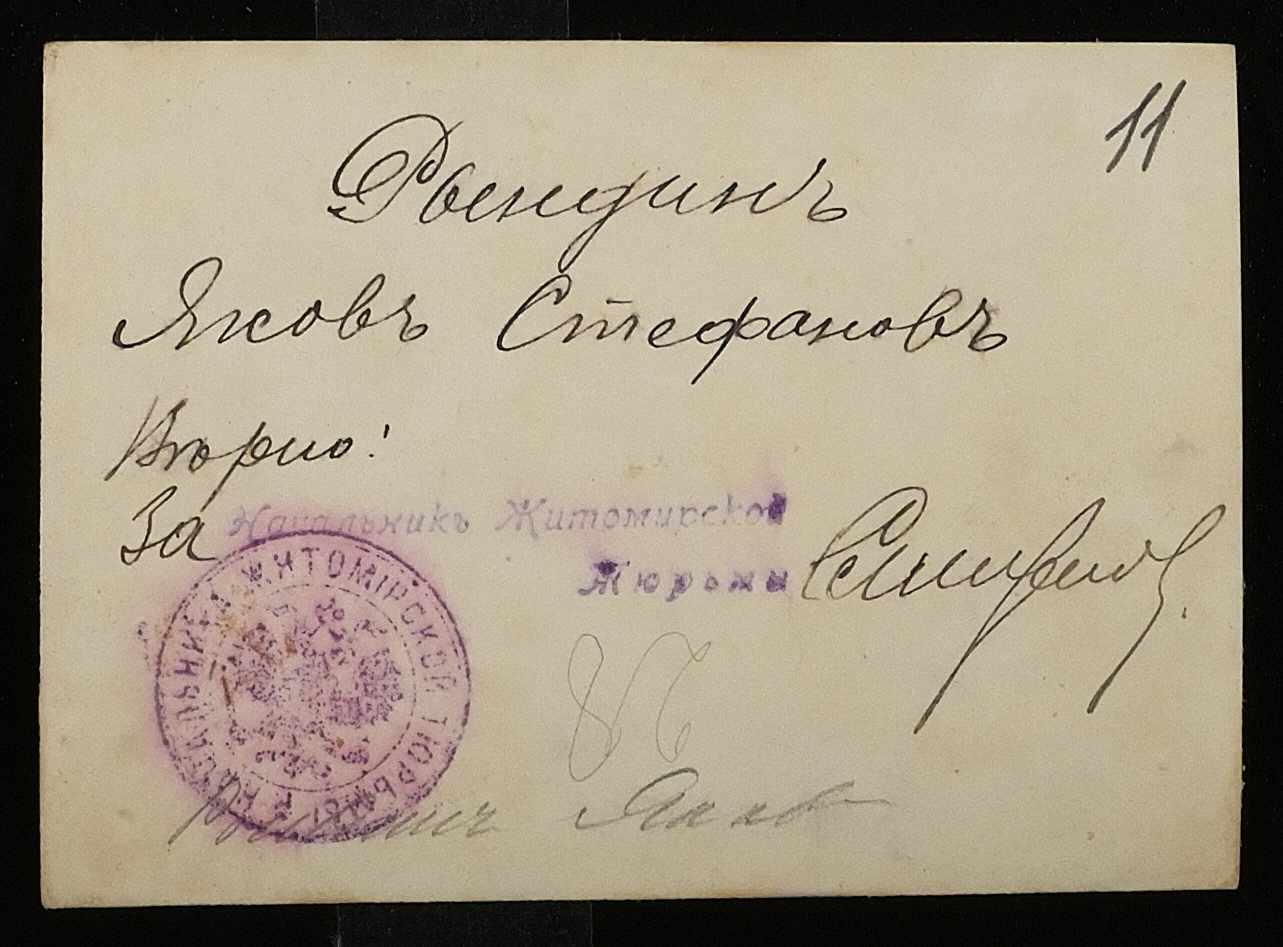 11
Рындинъ
Яковъ Стефановъ
Вѣрно:
За Начальникъ Житомирской
Тюрьмы
НАЧАЛЬНИКА ЖИТОМІРСКОЙ ТЮРЬМЫ
Яков